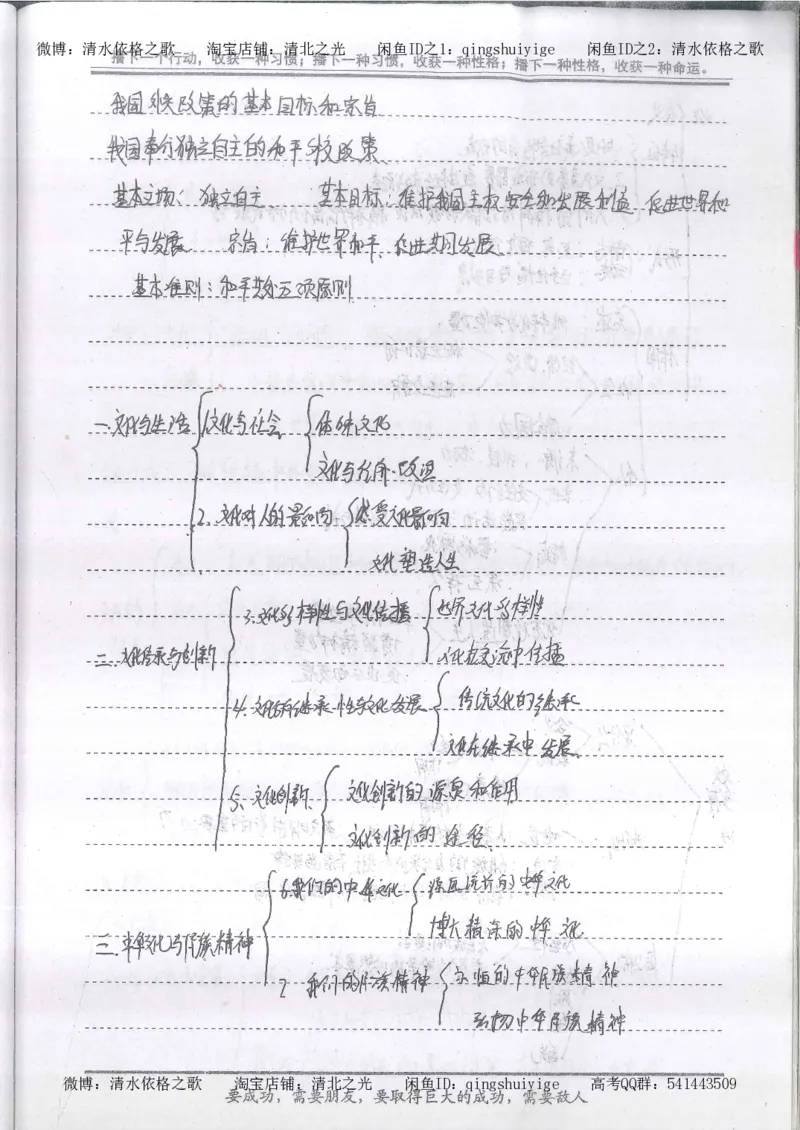 微博：清水依格之歌 淘宝店铺：清北之光 闲鱼ID之1：qingshuiyige 闲鱼ID之2：清水依格之歌
播下一个行动，收获一种习惯；播下一种习惯，收获一种性格；播下一种性格，收获一种命运。
我国外交政策的基本目标和宗旨
我国奉行独立自主的和平外交政策
基本立场：独立自主 基本目标：维护我国主权安全和发展利益，促进世界和
平与发展 宗旨：维护世界和平，促进共同发展
基本准则：和平共处五项原则
一.文化与生活 1文化与社会 体味文化
文化与经济.政治
2.文化对人的影响 感受文化影响
文化塑造人生
3.文化多样性与文化传播 世界文化多样性
二.文化传承与创新 文化在交流中传播
4.文化的继承性与文化发展 传统文化的继承
文化在继承中发展
5.文化创新 文化创新的源泉和作用
文化创新的途径
6.我们的中华文化 源远流长的中华文化
博大精深的中华文化
三.中华文化与民族精神
7 我们的民族精神 永恒的中华民族精神
弘扬中华民族精神
微博：清水依格之歌 淘宝店铺：清北之光 闲鱼ID：qingshuiyige 高考QQ群：541443509
要成功，需要朋友，要取得巨大的成功，需要敌人